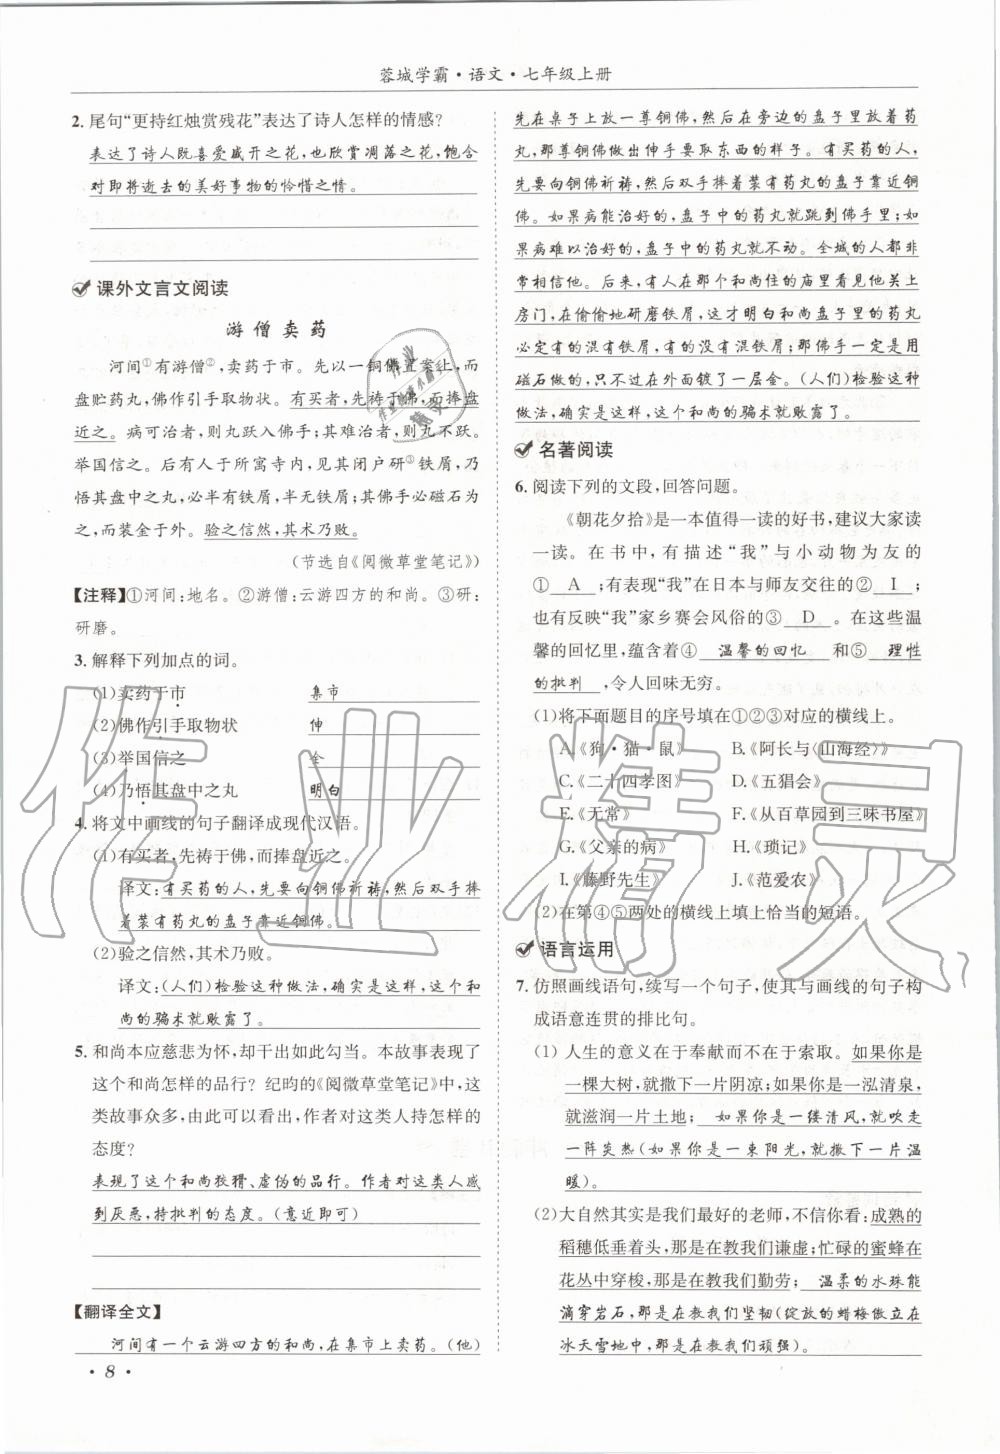 蓉城学霸·语文·七年级上册
2. 尾句“更持红烛赏残花”表达了诗人怎样的情感?
表达了诗人既喜爱盛开之花,也欣赏凋落之花,饱含
对即将逝去的美好事物的怜惜之情。
课外文言文阅读
游僧卖药
河间①有游僧②,卖药于市。先以一铜佛置案上,而
盘贮药丸,佛作引手取物状。有买者,先祷于佛,而捧盘
近之。病可治者,则丸跃入佛手;其难治者,则丸不跃。
举国信之。后有人于所寓寺内,见其闭户研③铁屑,乃
悟其盘中之丸,必半有铁屑,半无铁屑;其佛手必磁石为
之,而装金于外。验之信然,其术乃败。
(节选自《阅微草堂笔记》)
【注释】①河间:地名。②游僧:云游四方的和尚。③研:
研磨。
3. 解释下列加点的词。
(1)卖药于市 集市
(2)佛作引手取物状 伸
(3)举国信之 全
(4)乃悟其盘中之丸 明白
4. 将文中画线的句子翻译成现代汉语。
(1)有买者,先祷于佛,而捧盘近之。
译文:有买药的人,先要向铜佛祈祷,然后双手捧
着装有药丸的盘子靠近铜佛。
(2)验之信然,其术乃败。
译文:(人们)检验这种做法,确实是这样,这个和
尚的骗术就败露了。
5. 和尚本应慈悲为怀,却干出如此勾当。本故事表现了
这个和尚怎样的品行? 纪昀的《阅微草堂笔记》中,这
类故事众多,由此可以看出,作者对这类人持怎样的
态度?
表现了这个和尚狡猾、虚伪的品行。作者对这类人感
到厌恶,持批判的态度。(意近即可)
【翻译全文】
河间有一个云游四方的和尚,在集市上卖药。(他)
· 8 ·
先在桌子上放一尊铜佛,然后在旁边的盘子里放着药
丸,那尊铜佛做出伸手要取东西的样子。有买药的人,
先要向铜佛祈祷,然后双手捧着装有药丸的盘子靠近铜
佛。如果病能治好的,盘子中的药丸就跳到佛手里;如
果病难以治好的,盘子中的药丸就不动。全城的人都非
常相信他。后来,有人在那个和尚住的庙里看见他关上
房门,在偷偷地研磨铁屑,这才明白和尚盘子里的药丸
必定有的混有铁屑,有的没有混铁屑;那佛手一定是用
磁石做的,只不过在外面镀了一层金。(人们)检验这种
做法,确实是这样,这个和尚的骗术就败露了。
名著阅读
6. 阅读下列的文段,回答问题。
《朝花夕拾》是一本值得一读的好书,建议大家读
一读。在书中,有描述“我”与小动物为友的
① A ;有表现“我”在日本与师友交往的② I ;
也有反映“我”家乡赛会风俗的③ D 。在这些温
馨的回忆里,蕴含着④ 温馨的回忆 和⑤ 理性
的批判 ,令人回味无穷。
(1)将下面题目的序号填在①②③对应的横线上。
A.《狗·猫·鼠》 B.《阿长与〈山海经〉》
C.《二十四孝图》 D.《五猖会》
E.《无常》 F.《从百草园到三味书屋》
G.《父亲的病》 H.《琐记》
I.《藤野先生》 J.《范爱农》
(2)在第④⑤两处的横线上填上恰当的短语。
语言运用
7. 仿照画线语句,续写一个句子,使其与画线的句子构
成语意连贯的排比句。
(1) 人生的意义在于奉献而不在于索取。如果你是
一棵大树,就撒下一片阴凉;如果你是一泓清泉,
就滋润一片土地; 如果你是一缕清风,就吹走
一阵炎热(如果你是一束阳光,就撒下一片温
暖)。
(2)大自然其实是我们最好的老师,不信你看:成熟的
稻穗低垂着头,那是在教我们谦虚;忙碌的蜜蜂在
花丛中穿梭,那是在教我们勤劳; 温柔的水珠能
滴穿岩石,那是在教我们坚韧(绽放的蜡梅傲立在
冰天雪地中,那是在教我们顽强)。
作业精灵